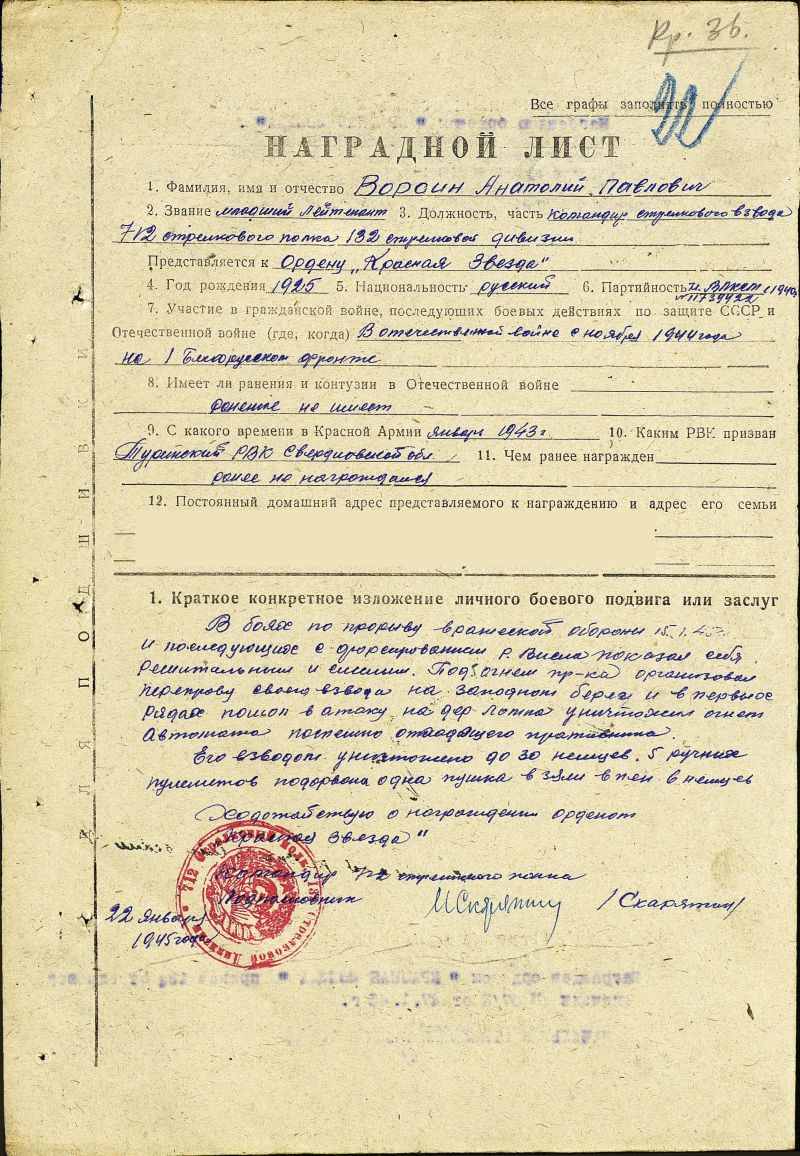 Кр. Зв.
Все графы заполнять полностью
НАГРАДНОЙ ЛИСТ
1. Фамилия, имя и отчество Ворсин Анатолий Павлович
2. Звание младший лейтенант 3. Должность, часть командир стрелкового взвода
712 стрелкового полка 132 стрелковой дивизии
Представляется к Ордену „Красная Звезда"
4. Год рождения 1925 5. Национальность русский 6. Партийность
№11739422
7. Участие в гражданской войне, последующих боевых действиях по защите СССР и
Отечественной войне (где, когда) В отечественной войне с ноября 1944 года
на 1 Белорусском фронте
8. Имеет ли ранения и контузии в Отечественной войне
ранение не имеет
9. С какого времени в Красной Армии январь 1943 г. 10. Каким РВК призван
Туринский РВК Свердловской обл 11. Чем ранее награжден
ранее не награждался
12. Постоянный домашний адрес представляемого к награждению и адрес его семьи
1. Краткое конкретное изложение личного боевого подвига или заслуг
В боях по прорыву вражеской обороны 15.1.45
и последующие с форсированием р. Висла показал себя
решительным и смелым. Под огнем пр-ка организовал
переправу своего взвода на западном берег и в первые
рядах пошол в атаку на дер уничтожил огнем
Автомата поспешно отходящего противника.
Его взводом уничтожено до 30 немцев. 5 ручных
пулеметов подорвана одна пушка взяли в плен 8 немцев
Ходотайствую о награждении орденом
„Красная Звезда"
Командир 712 стрелкового полка
Подполковник Скарятин /Скарятин/
22 января
1945 года
712 Стрелковый Полк 132 Стрелковой Дивизии
ДЛЯ ПОДШИВКИ